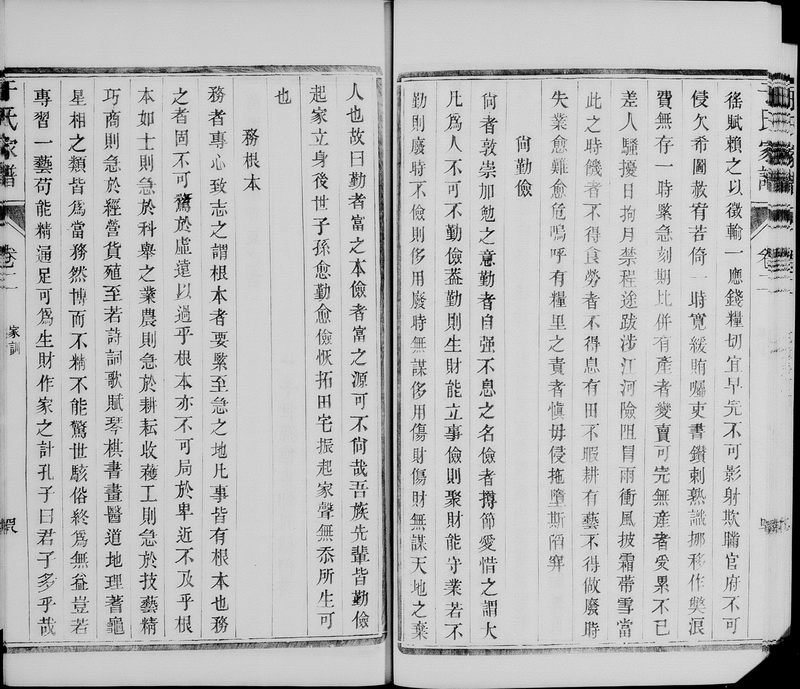 徭賦賴之以徵輸一應錢糧切宜早完不可影射欺瞞官府不可
侵欠希圖赦宥若倚一時寬緩賄囑吏書鑽刺熟識挪移作獘浪
費無存一時緊急刻期比併有產者變賣可完無產者受累不已
差人騷擾日拘月禁程途跋涉江河險阻冒雨衝風披霜帶雪當
此之時饑者不得食勞者不得息有田不暇耕有藝不得做廢時
失業愈難愈危嗚呼有糧里之責者慎毋侵拖墮斯陷穽
尙勤儉
尙者敦崇加勉之意勤者自强不息之名儉者撙節愛惜之謂大
凡爲人不可不勤儉葢勤則生財能立事儉則聚財能守業若不
勤則廢時不儉則侈用廢時無謀侈用傷財傷財無謀天地之棄
人也故曰勤者富之本儉者富之源可不尙哉吾族先輩皆勤儉
起家立身後世子孫愈勤愈儉恢拓田宅振起家聲無忝所生可
也
務根本
務者專心致志之謂根本者要緊至急之地凡事皆有根本也務
之者固不可騖於虛遠以過乎根本亦不可局於卑近不及乎根
本如士則急於科舉之業農則急於耕耘收穫工則急於技藝精
巧商則急於經營貨殖至若詩詞歌賦琴棋書畫醫道地理蓍龜
星相之類皆爲當務然博而不精不能驚世駭俗終爲無益豈若
專習一藝苟能精通足可爲生財作家之計孔子曰君子多乎哉
于氏家譜
卷二
家訓